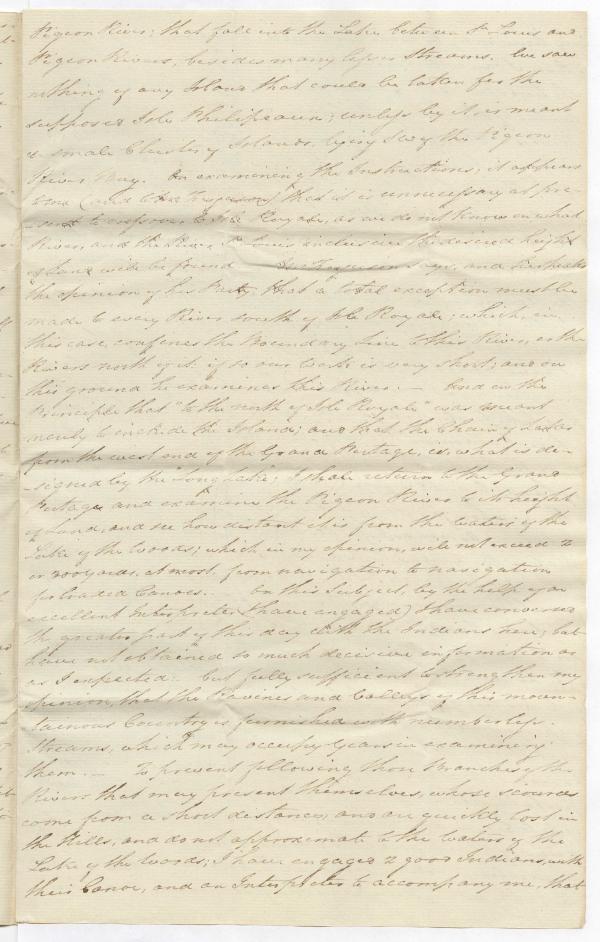 Pigeon River; that fall into the Lake between St Louis and
Pigeon Rivers, besides many lesser Streams. We saw
nothing of any Island that could be taken for the
supposed Isle Philipeaux; unless by it, is meant
a small Cluster of Islands, lying SW of the Pigeon
River Bay. On examining the Instructions, it appears
to me (and to Mr Ferguson) that it is unnecessary at pre-
-sent to cross over to Isle Royale, as we do not know on what
River, and the River St Louis inclusive the desired height
of Land will be found Mr Ferguson says, and he speaks
the opinion of his Party, that a total exception must be
made to every River south of Isle Royale; which, in
this case, confines the Boundary Line to this River, or the
Rivers north of it. if so our work is very short; and on
this ground he examines this River. — And on the
Principle that "to the north of Isle Royale" was meant
merely to include the Island; and that the Chain of Lakes
from the west end of the Grand Portage, is, what is de-
-signed by the "Long Lake"; I shall return to the Grand
Portage and examine the Pigeon River to its height
of Land, and see how distant it is from the waters of the
Lake of the Woods; which, in my opinion, will not exceed 2
or 300 yards, at most, from navigation to navigation
for loaded Canoes. On this Subject, by the help of an
excellent Interpreter (I have engaged) I have conversed
the greater part of this day with the Indians here; but
have not obtained so much decisive information as
as I expected: but fully sufficient to strengthen my
opinion, that the Ravines and Valleys of this moun-
-tainous Country is furnished with numberless
Streams, which may occupy Years in examining
them. — To prevent following those Branches of the
Rivers that may present themselves, whose sources
come from a short distance, and are quickly lost in
the Hills, and do not approximate to the waters of the
Lake of the Woods; I have engaged 2 good Indians, with
their Canoe, and an Interpreter to accompany me, that